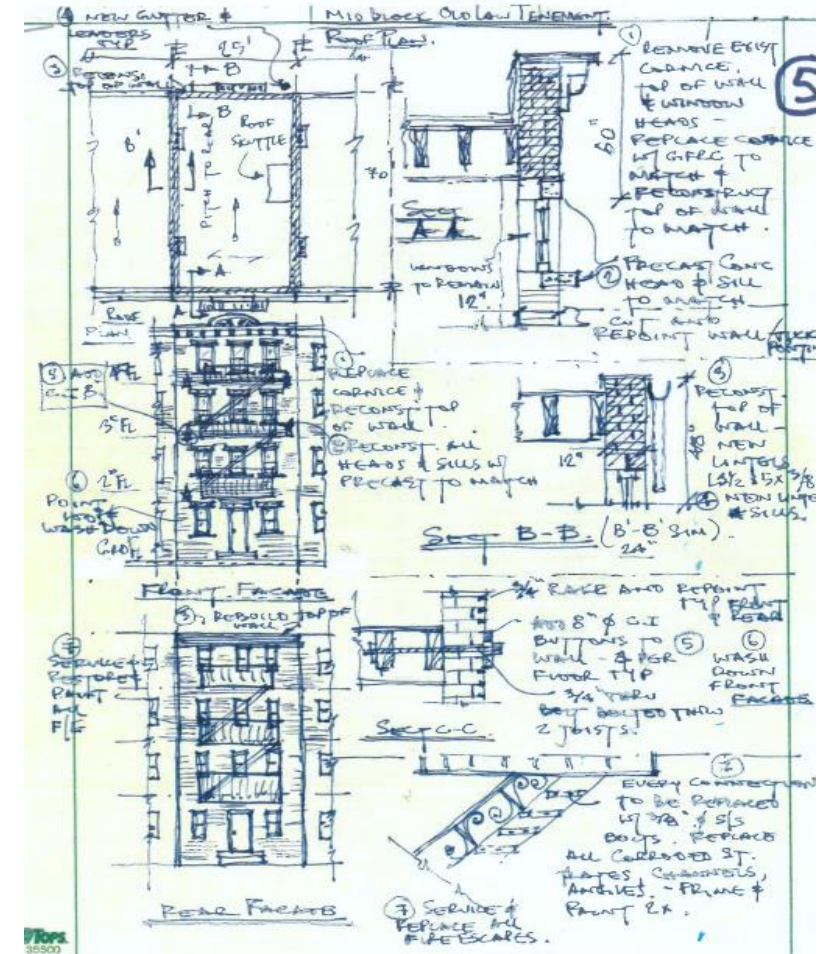 ④ NEW GUTTER &
LEADERS
TYP.
MID BLOCK OLD LAW TENEMENT.
ROOF PLAN.
25'
③ RECONS.
TOP OF WALL
B
B
B'
PITCH TO REAR
ROOF
SCUTTLE
70
A
A
ROOF
PLAN
①
REMOVE EXIST
CORNICE,
TOP OF WALL
& WINDOW
HEADS -
REPLACE CORNICE
W/ GFRC TO
MATCH &
RECONSTRUCT
TOP OF WALL
TO MATCH.
5
60"
SECT
A-A
WINDOWS
TO REMAIN
12"
② PRECAST CONC
HEAD & SILL
TO MATCH
CUT AND
REPOINT WALL / TUCK
POINTING
⑤ ADD
C.I. B
4TH FL
3RD FL
⑥ 2ND FL
POINT
WASH DOWN
GRDFL
① REPLACE
CORNICE &
RECONST. TOP
OF WALL.
② RECONST. ALL
HEADS & SILLS W/
PRECAST TO MATCH
FRONT FACADE
③
RECONST.
TOP OF
WALL -
NEW
LINTELS
L 3 1/2 x 5 x 3/8
④ NEW LINTEL
& SILLS.
12"
48"
SECT B-B. (B'-B' SIM).
24"
③ REBUILD TOP OF
WALL
⑦
SERVICE &
RESTORE &
PAINT
ALL
F/E
REAR FACADE
3/4" RAKE AND REPOINT
TYP FRONT
& REAR
ADD 8" ϕ C.I
BUTTONS TO
WALL - 4 PER
FLOOR TYP
⑤
3/4" THRU
BOLT BOLTED THRU
2 JOISTS.
⑥
WASH
DOWN
FRONT
FACADE
SECT C-C.
⑦
EVERY CONNECTION
TO BE REPLACED
W/ 3/8" ϕ S/S
BOLTS. REPLACE
ALL CORRODED ST.
PLATES, CHANNELS,
ANGLES. - PRIME &
PAINT 2X.
⑦ SERVICE &
REPLACE ALL
FIRE ESCAPES.
TOPS
35500